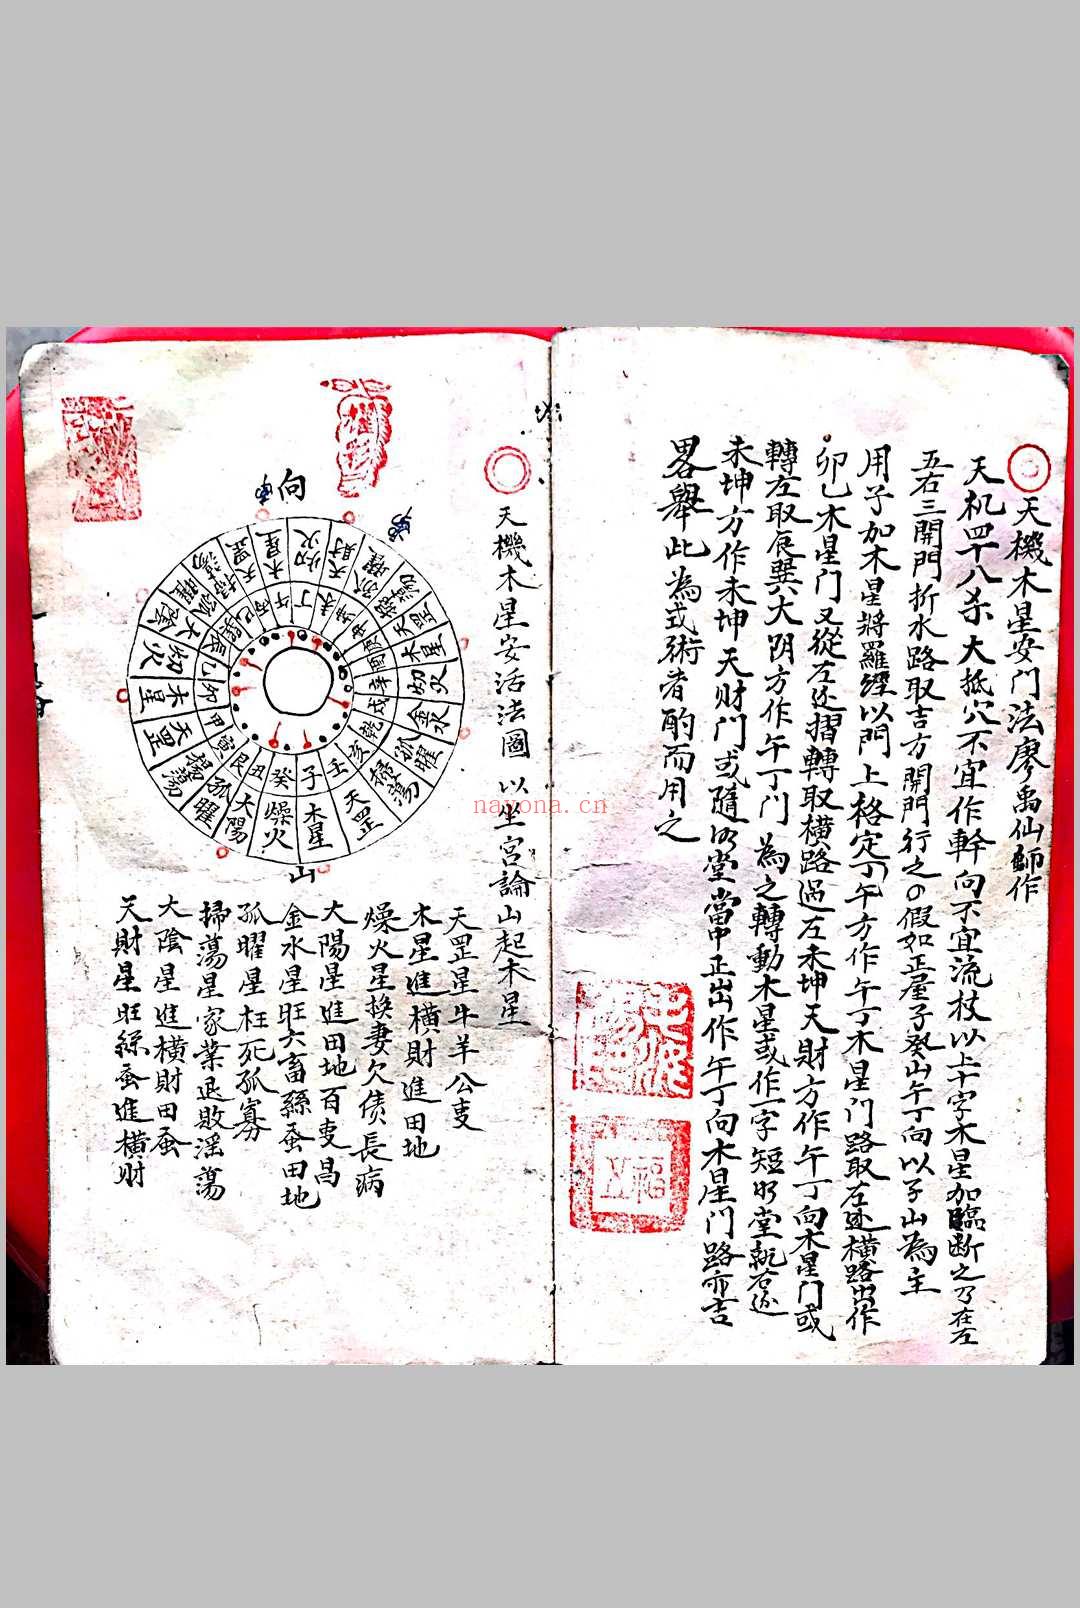 天機木星安門法廖禹仙師作
天机四十八杀大抵穴不宜作幹向不宜流杖以上十字木星加臨断之乃在左
五右三開門折水路取吉方開門行之假如正屋子癸山午丁向以子山為主
用子加木星將羅經以門上格定丁午方作午丁木星门路取左边横路出作
卯乙木星門又從左边摺轉取横路過左未坤天財方作午丁向木星门或
轉左取辰巽大阴方作午丁门為之轉動木星或作一字短明堂就右边
未坤方作未坤天财門或隨明堂當中正出作午丁向木星門路亦吉
畧舉此為式術者酌而用之
天機木星安活法圖以坐宫論山起木星
向
午
丁
未
坤
申
庚
酉
辛
戌
乾
亥
壬
子
癸
丑
艮
寅
甲
卯
乙
辰
巽
巳
丙
天財
孤曜
掃蕩
天罡
木星
燥火
金水
孤曜
掃蕩
天罡
木星
燥火
大陽
孤曜
掃蕩
天罡
木星
大陰
孤曜
掃蕩
天罡
木星
山
天罡星牛羊公事
木星進横財進田地
燥火星換妻欠债長病
大陽星進田地百事昌
金水星旺六畜絲蚕田地
孤曜星枉死孤寡
掃蕩星家業退敗淫蕩
大陰星進横財田蚕
天財星旺絲蚕進横财
nayona.cn